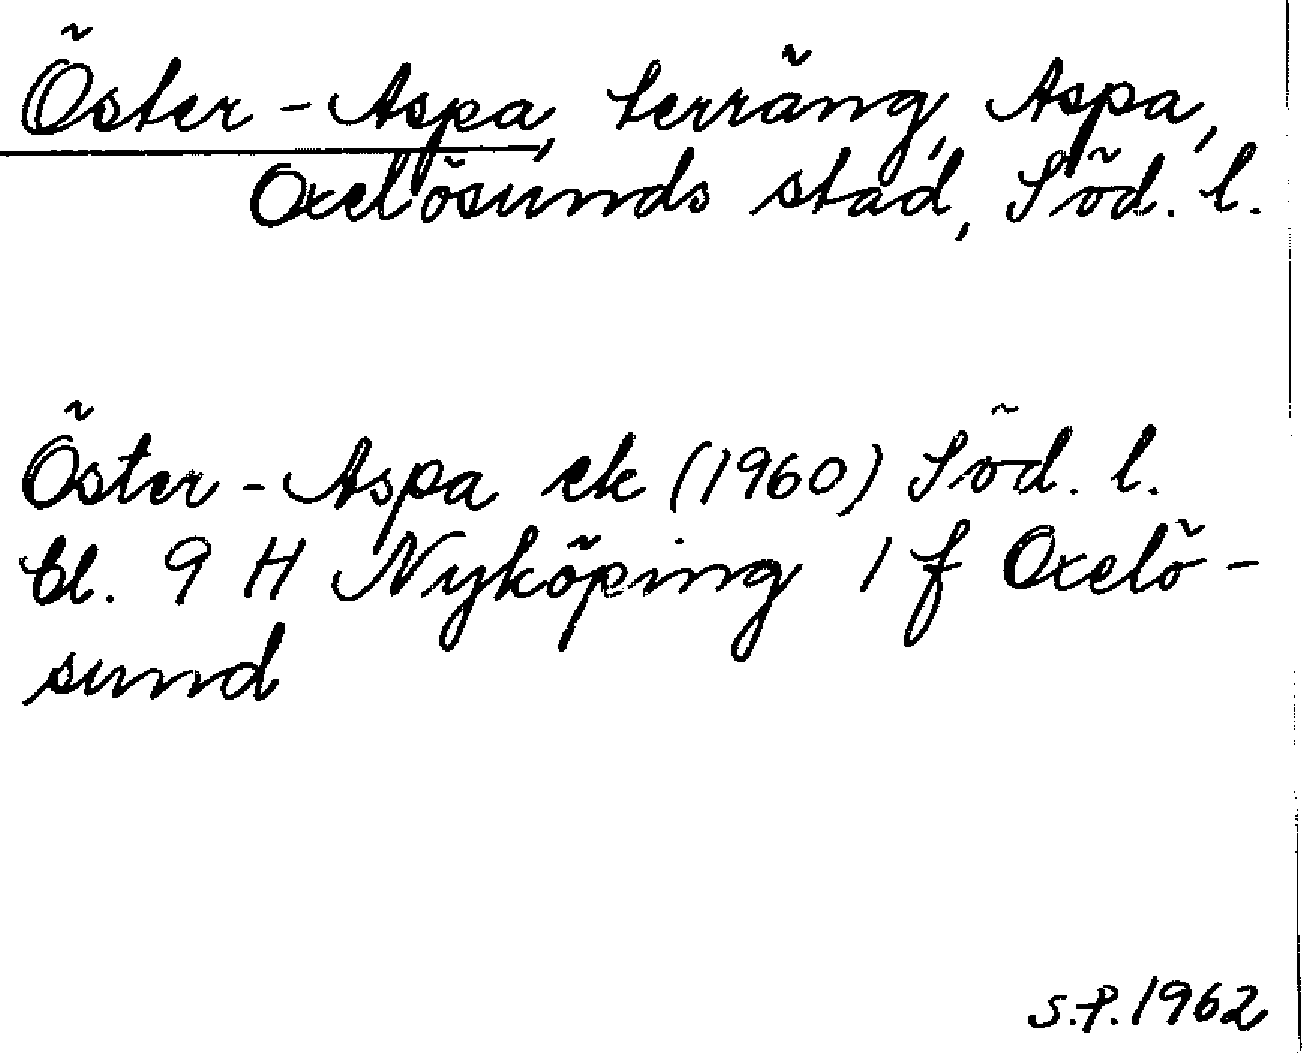 Öster-Aspa, terräng, Aspa,
Oxelösunds stad, Söd. l.
Öster-Aspa ek (1960) Söd. l.
bl. 9 H Nyköping 1 f Oxelö-
sund
S.P. 1962